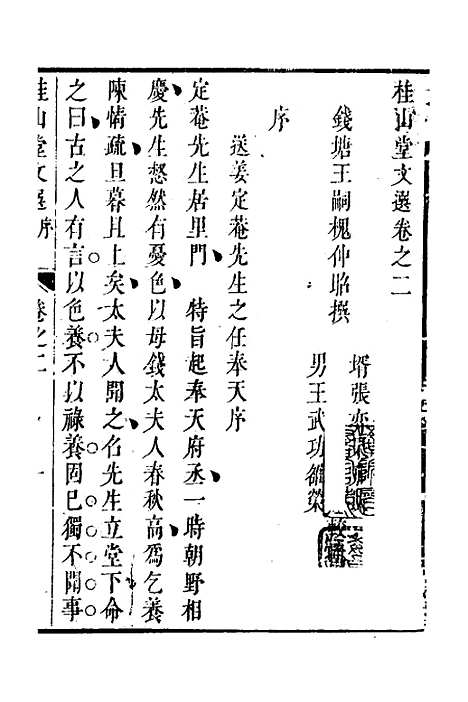 桂山堂文選卷之二
錢塘王嗣槐仲昭撰
壻張
男王武功
序
送姜定菴先生之任奉天序
定菴先生居里門 特旨起奉天府丞一時朝野相
慶先生愁然有憂色以母錢太夫人春秋高爲乞養
陳情疏且暮且上矣太夫人聞之召先生立堂下命
之曰古之人有言以色養不以祿養固已獨不聞事
桂山堂文選 序 卷之二 一